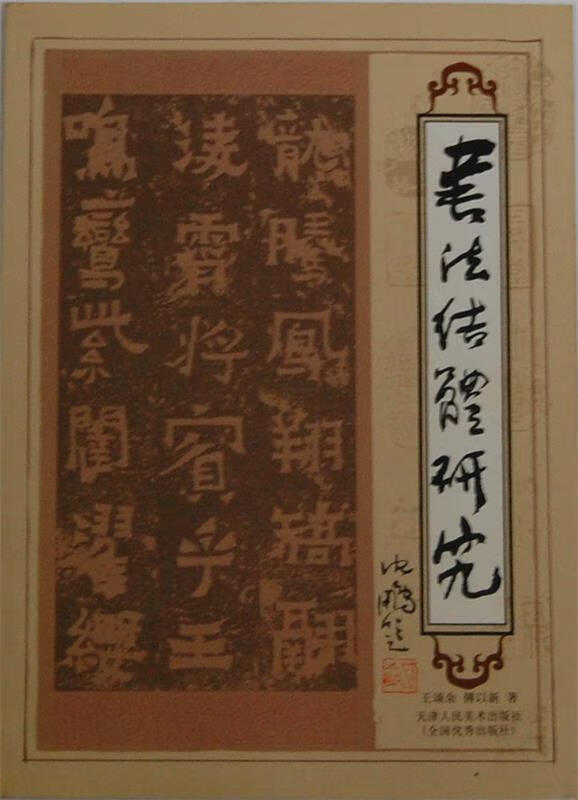 書法结體研究
沈鹏题
龍騰鳳翔矯翮
淩霄將賓乎王
鳴鸞紫闥濯纓
王颂余 傅以新 著
天津人民美术出版社
(全国优秀出版社)